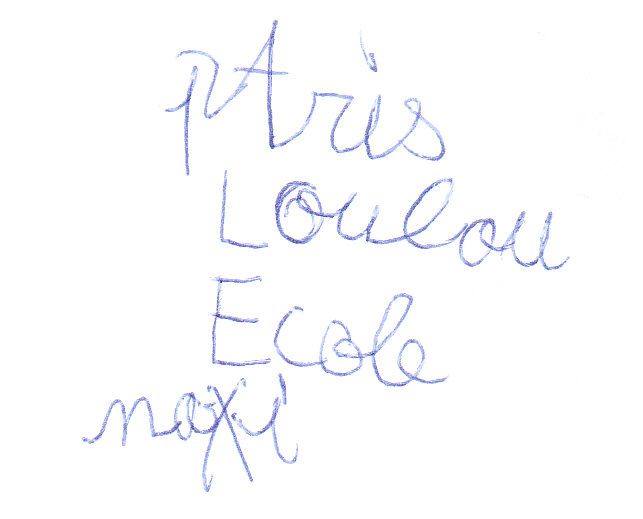 pAris
Loulou
Ecole
naxi